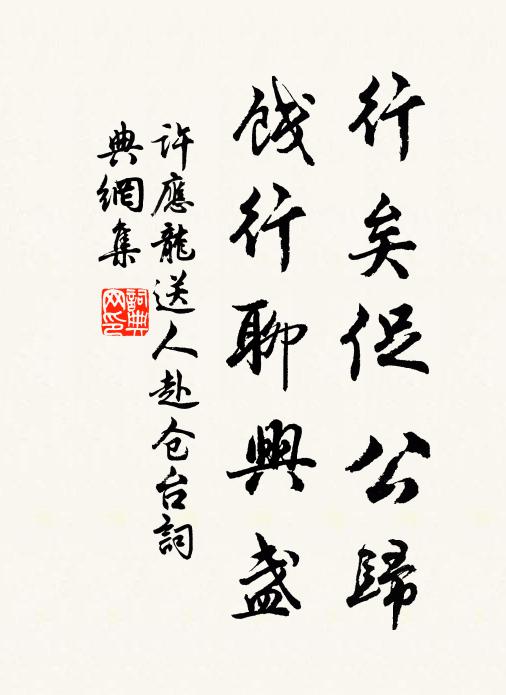 行矣促公歸
餞行聊興盏
許應龍送人赴仓台詞
典網集
詞典网印